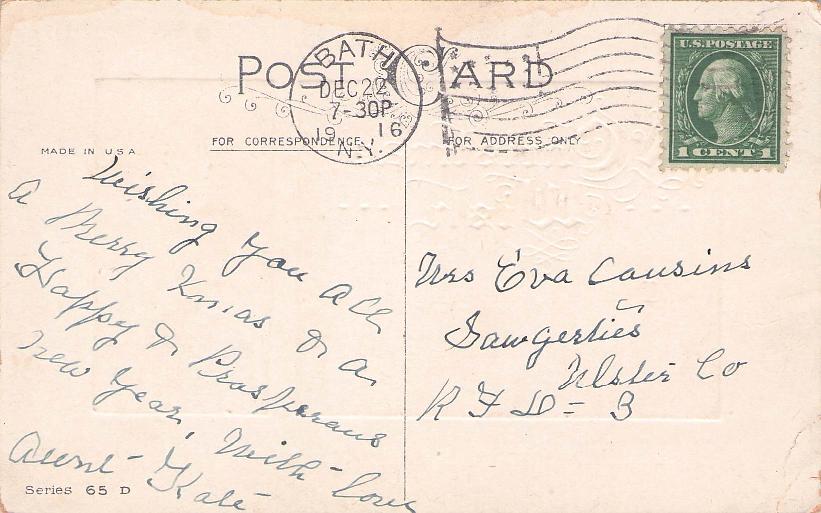 POST CARD
BATH
DEC 22
7-30P
1916
N.Y.
U.S. POSTAGE
1 CENT 1
FOR CORRESPONDENCE
FOR ADDRESS ONLY
MADE IN U S A
Wishing you all
a Merry Xmas & a
Happy & Prosperous
New Year, With love
Aunt Kate
Mrs Eva Cousins
Sawgerties
Ulster Co
R F D = 3
Series 65 D